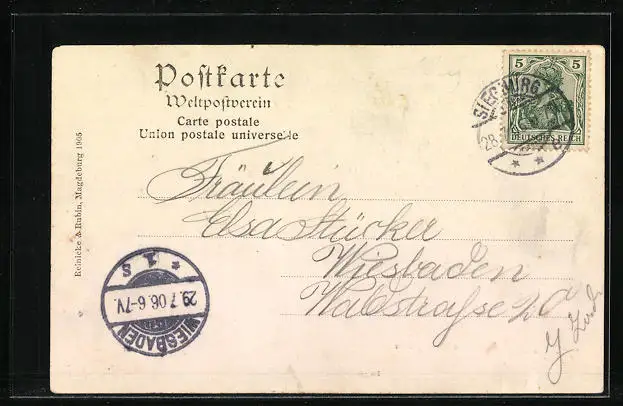 Postkarte
Weltpostverein
Carte postale
Union postale universelle
5 5
DEUTSCHES REICH
SIEGBURG
28.
* *
Reinicke & Rubin, Magdeburg 1905
Fräulein
Elsa Stücker
Wiesbaden
Walstrasse
* 1 s
29.7.06.6-7V.
WIESBADEN